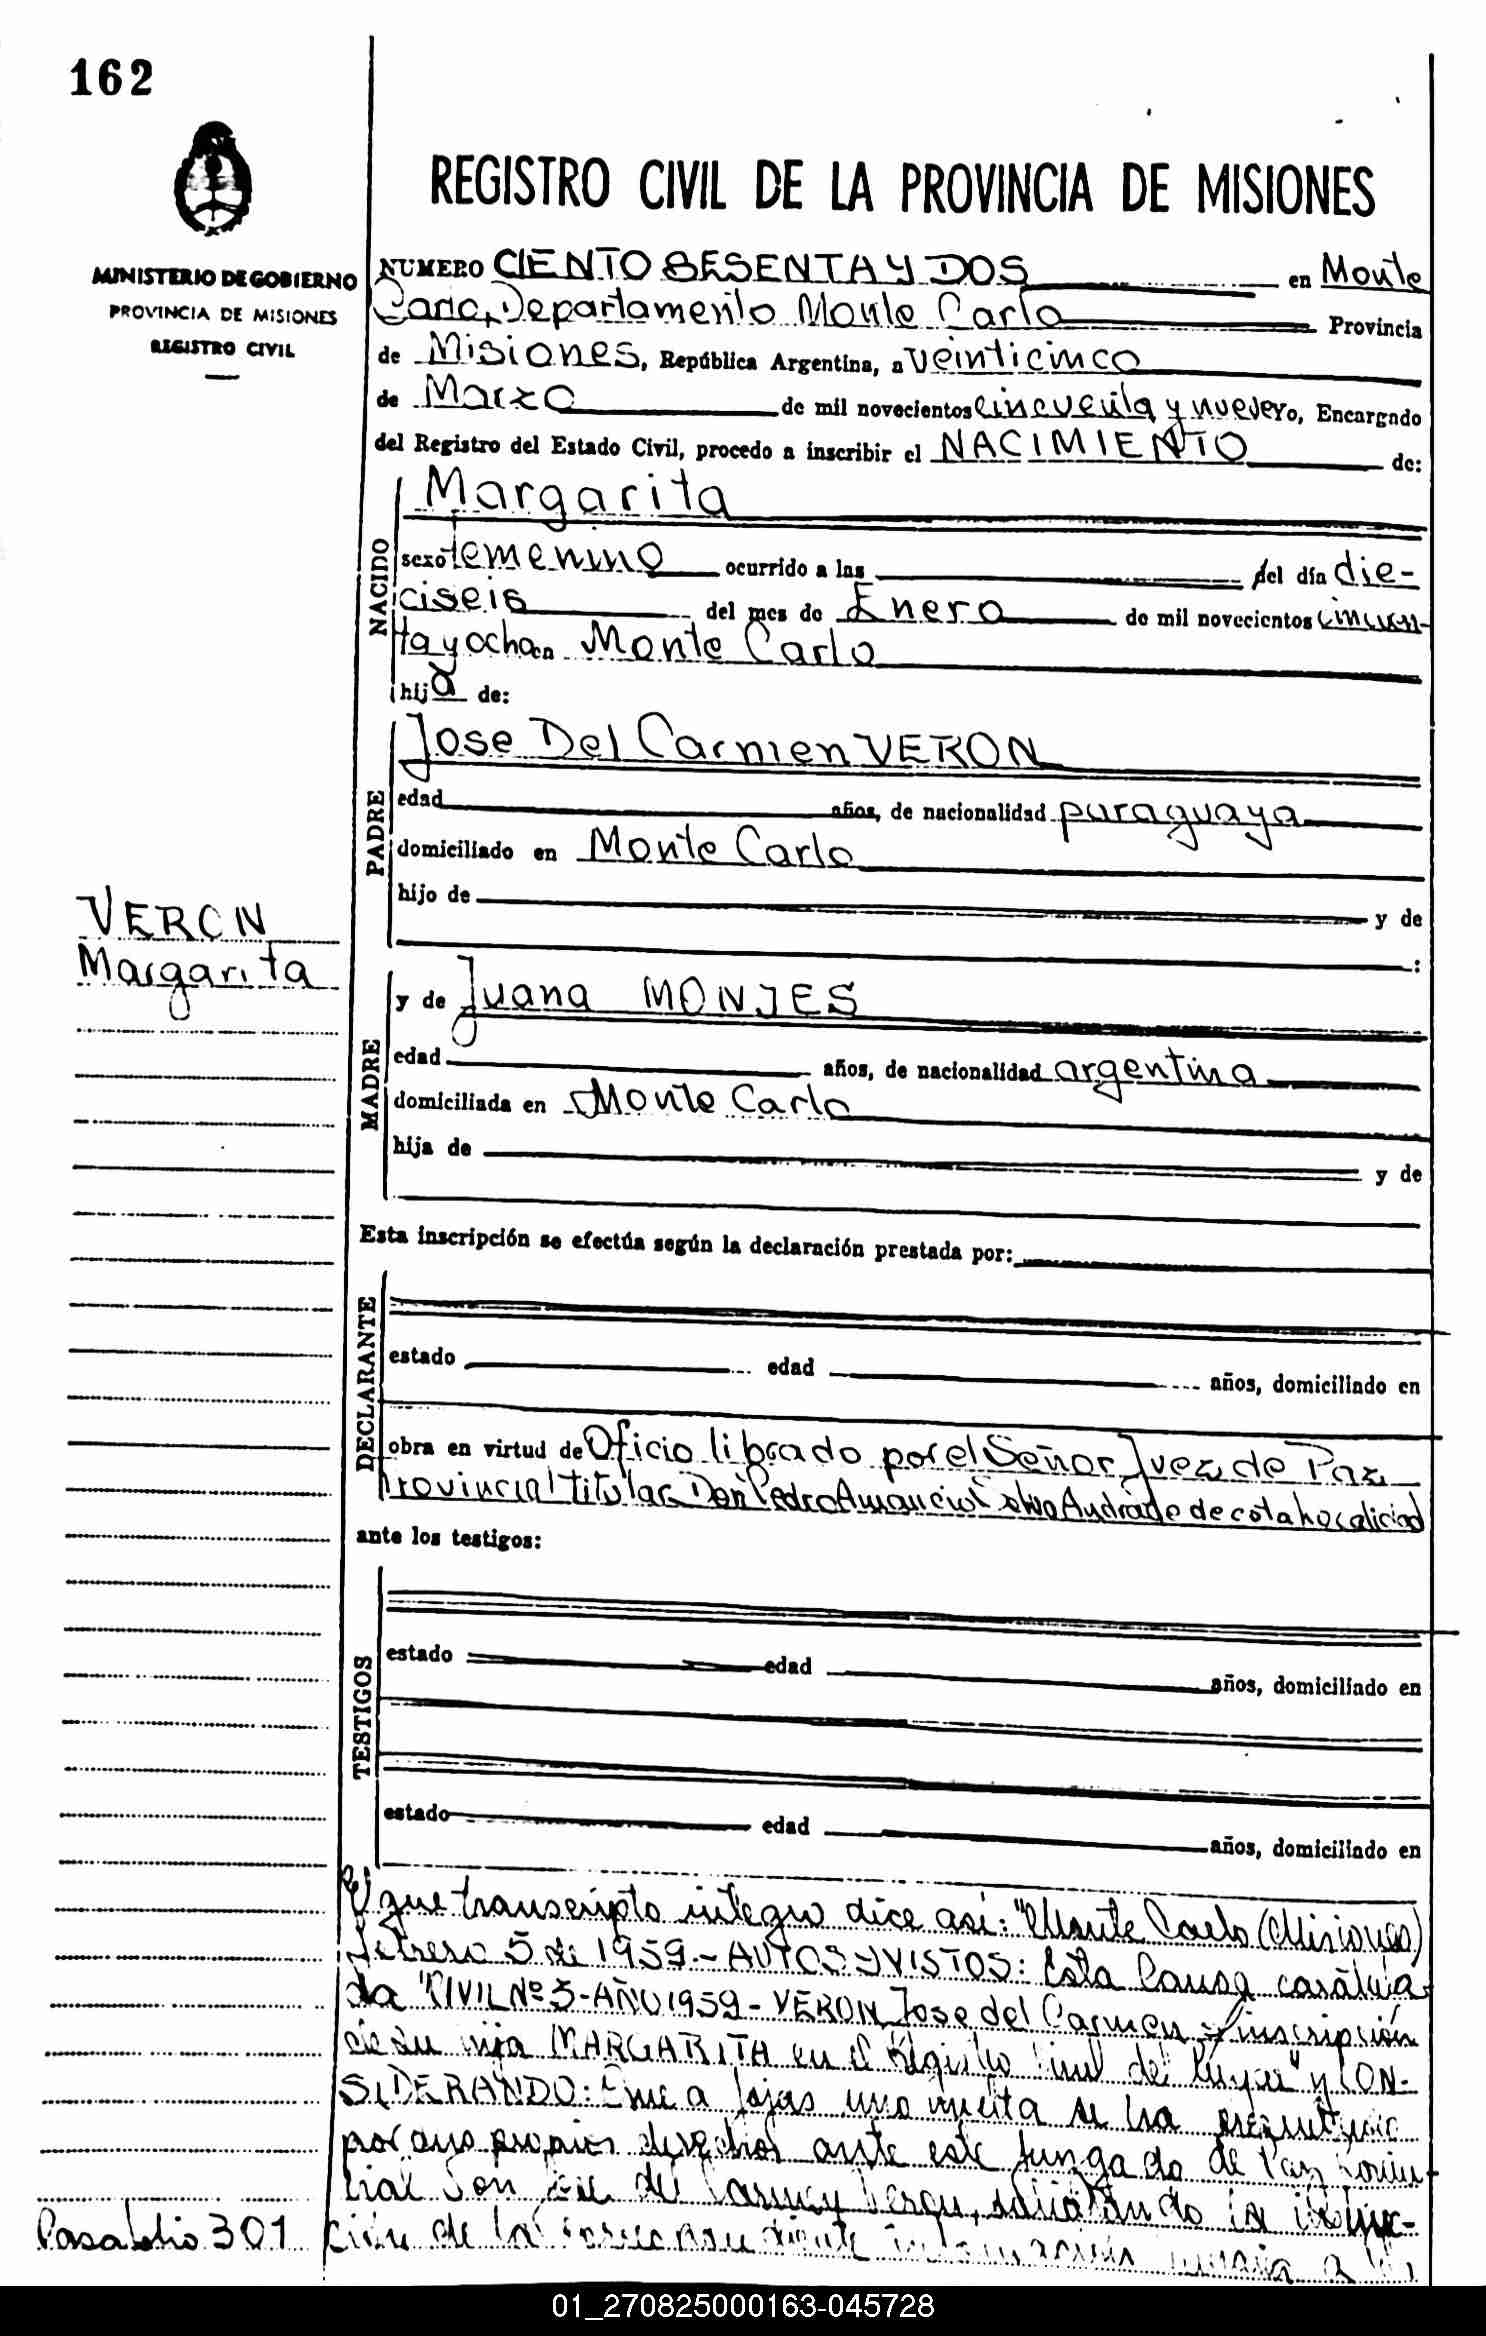 162
REGISTRO CIVIL DE LA PROVINCIA DE MISIONES
MINISTERIO DE GOBIERNO
PROVINCIA DE MISIONES
REGISTRO CIVIL
NUMERO CIENTO SESENTA Y DOS en Monte
Carlo, Departamento Monte Carlo Provincia
de Misiones, República Argentina, a veinticinco
de Marzo de mil novecientos cincuenta y nueve yo, Encargado
del Registro del Estado Civil, procedo a inscribir el NACIMIENTO de:
NACIDO
Margarita
sexo femenino ocurrido a las del día die-
ciseis del mes de Enero de mil novecientos cincuen-
ta y ocho en Monte Carlo
hija de:
PADRE
Jose Del Carmen VERON
edad años, de nacionalidad paraguaya
domiciliado en Monte Carlo
hijo de y de
:
VERON
Margarita
MADRE
y de Juana MONJES
edad años, de nacionalidad argentina
domiciliada en Monte Carlo
hija de y de
Esta inscripción se efectúa según la declaración prestada por:
DECLARANTE
estado edad años, domiciliado en
obra en virtud de Oficio librado por el Señor Juez de Paz
Provincial Titular Don Pedro Amancio Andrade de esta localidad
ante los testigos:
TESTIGOS
estado edad años, domiciliado en
estado edad años, domiciliado en
y que transcripto integro dice asi: "Monte Carlo (Misiones)
febrero 5 de 1959.- AUTOS Y VISTOS: Esta Causa caratula-
da "CIVIL Nº 3-AÑO 1959- VERON Jose del Carmen s/ inscripción
de su hija MARGARITA en el Registro Civil del lugar" y CON-
SIDERANDO: Que a fojas uno vuelta se ha
por sus propios derechos ante este Juzgado de Paz Provin-
cial Don José del Carmen Veron, solicitando la
ción de la correspondiente información a
Pasa folio 301
01_270825000163-045728